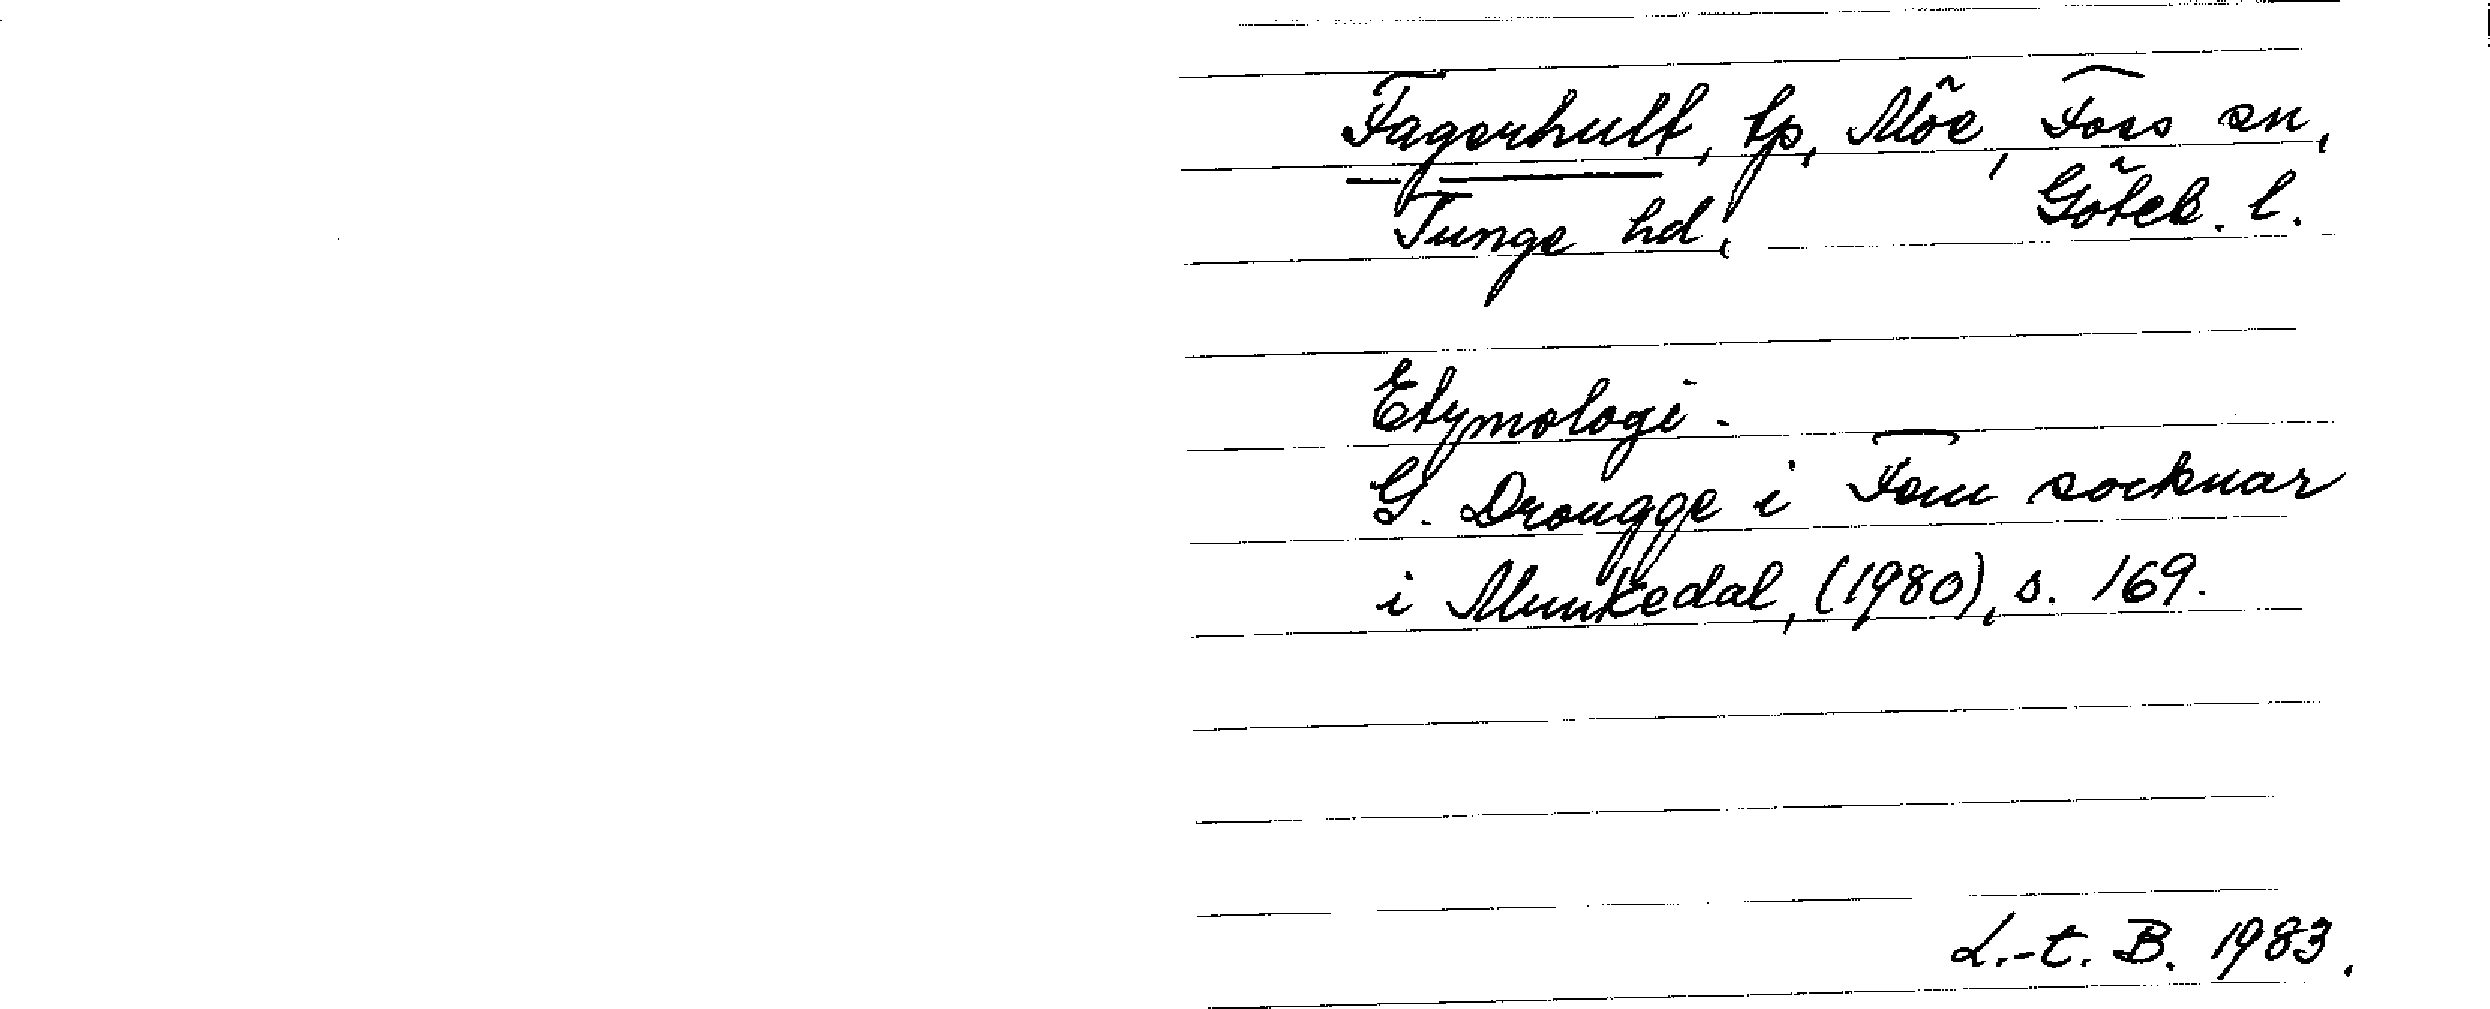 Fagerhult, tp, Möe, Foss sn,
Tunge hd, Göteb. l.
Etymologi.
G. Drougge i Fem socknar
i Munkedal, (1980), s. 169.
L.-t. B. 1983.